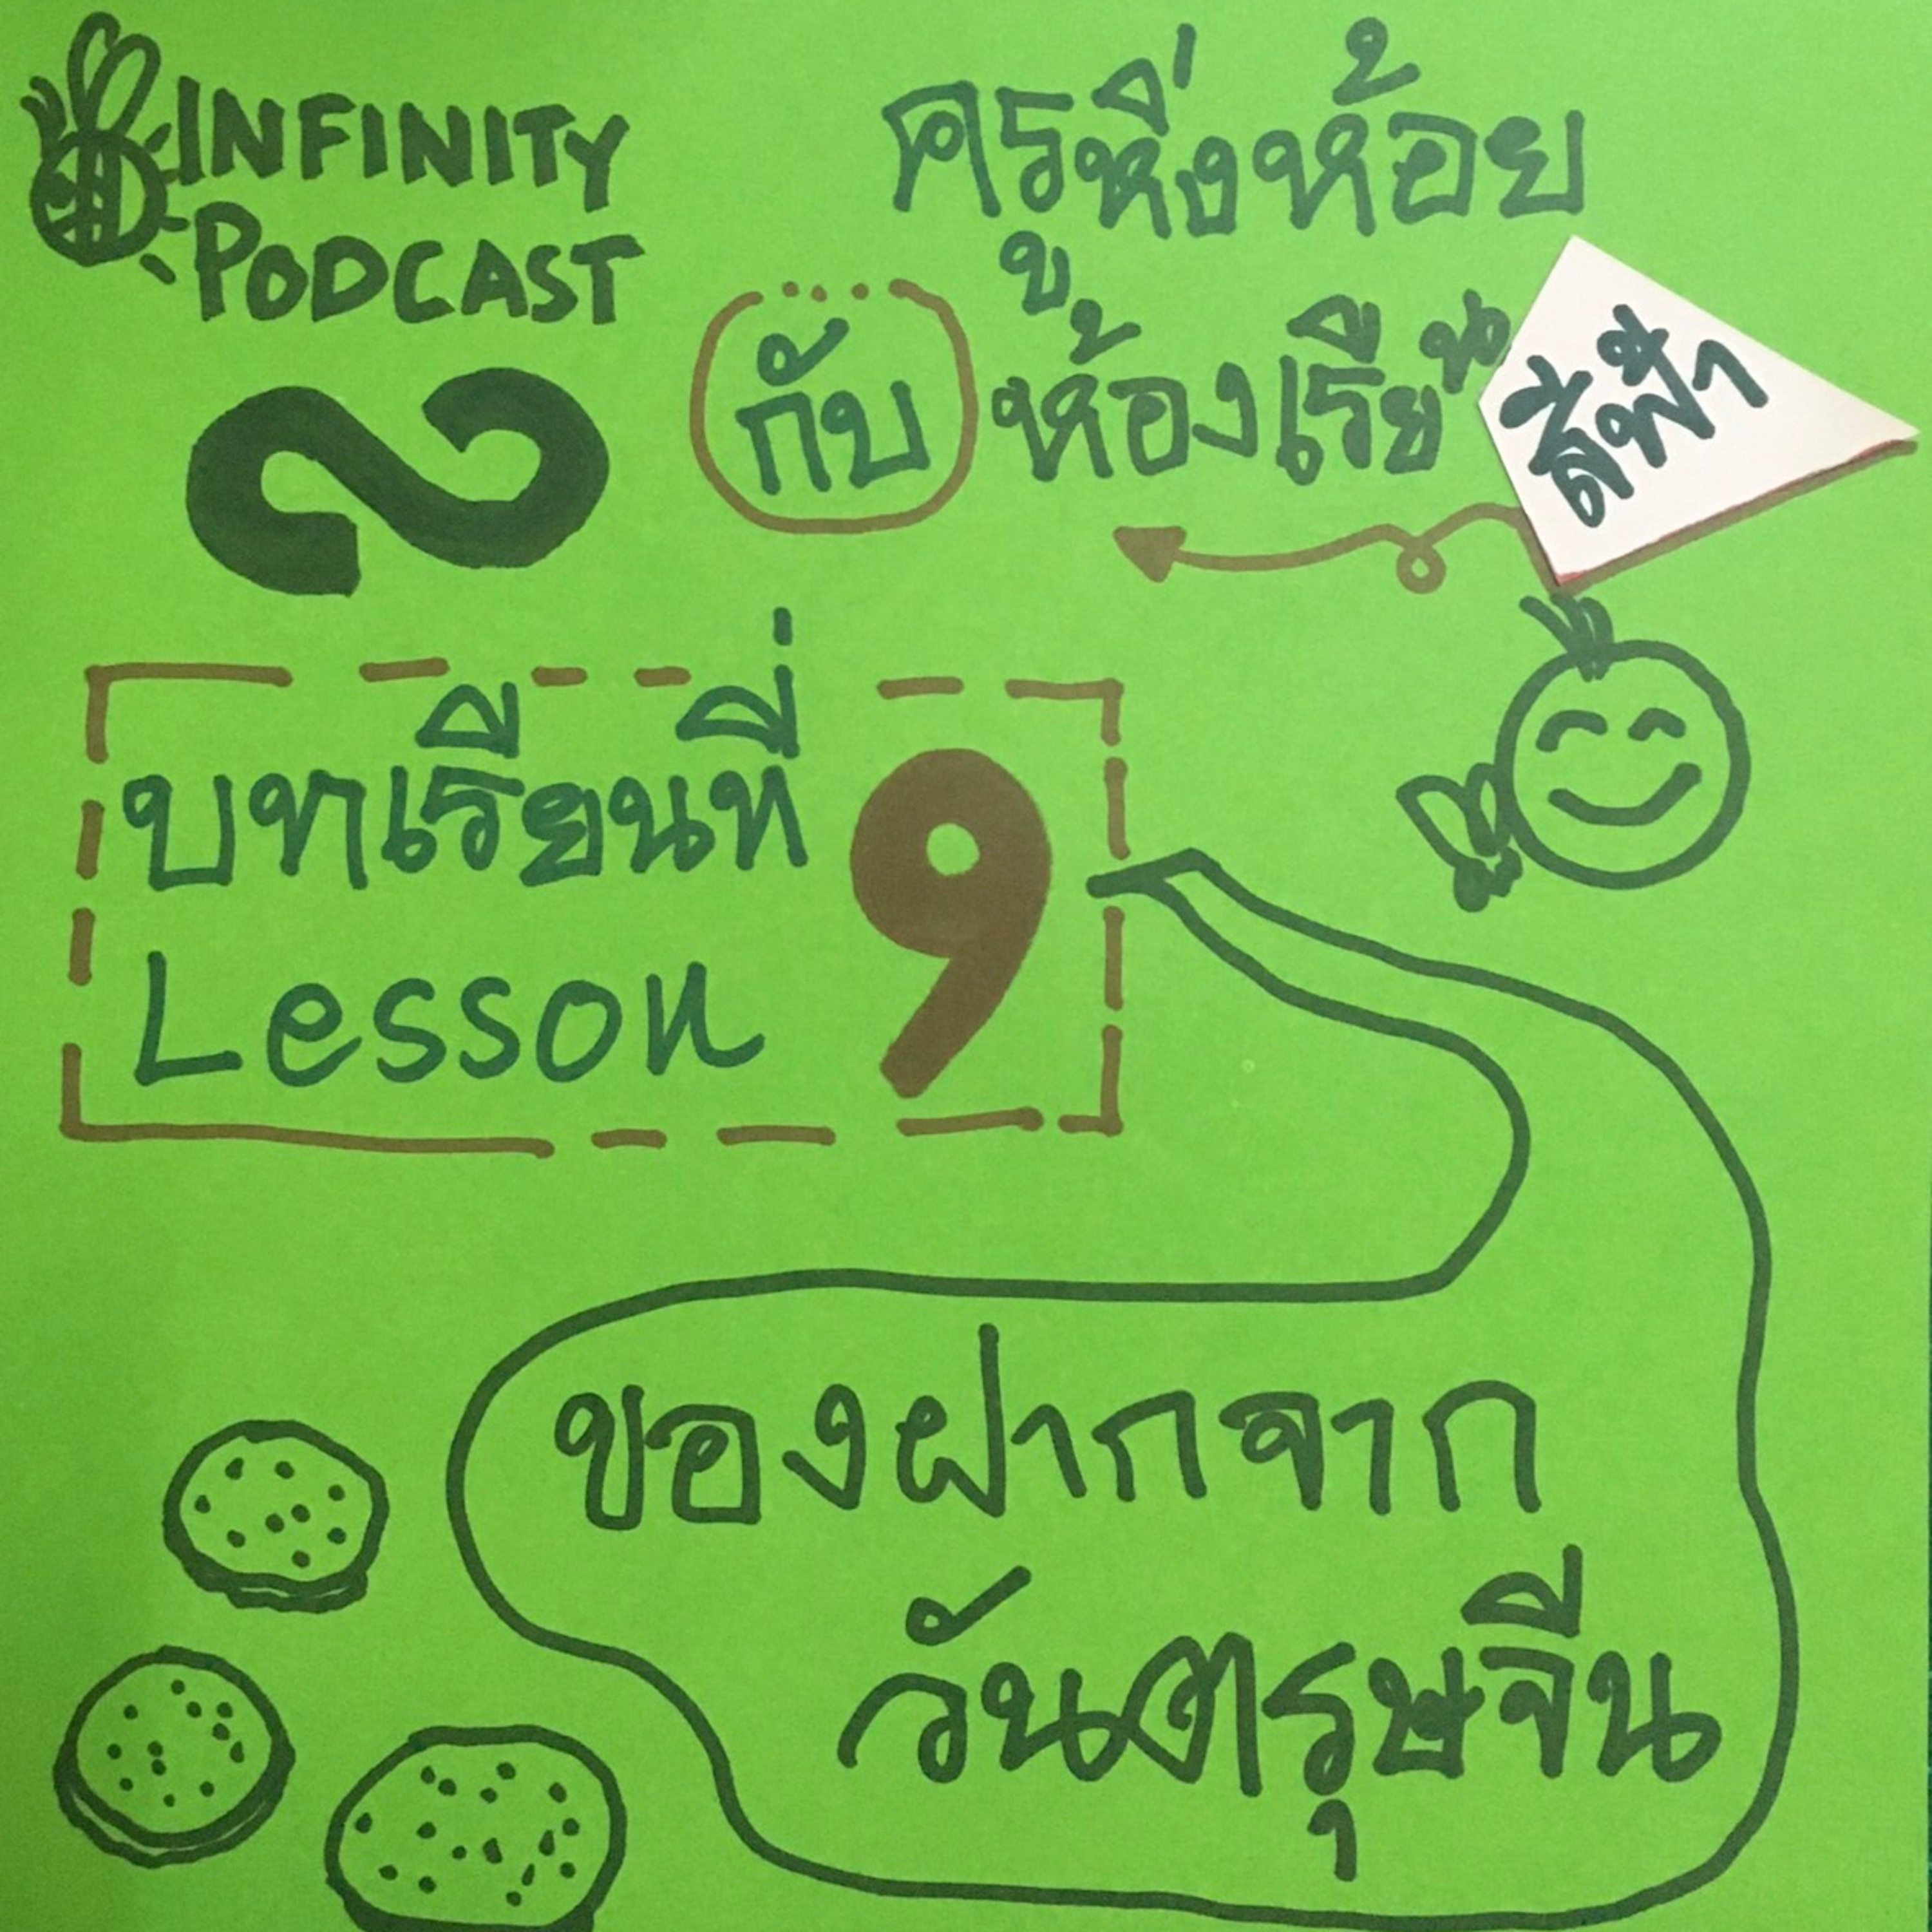 INFINITY
PODCAST
ครูหิ่งห้อย
กับ ห้องเรียน สีฟ้า
บทเรียนที่ 9
Lesson
ของฝากจาก
วันตรุษจีน